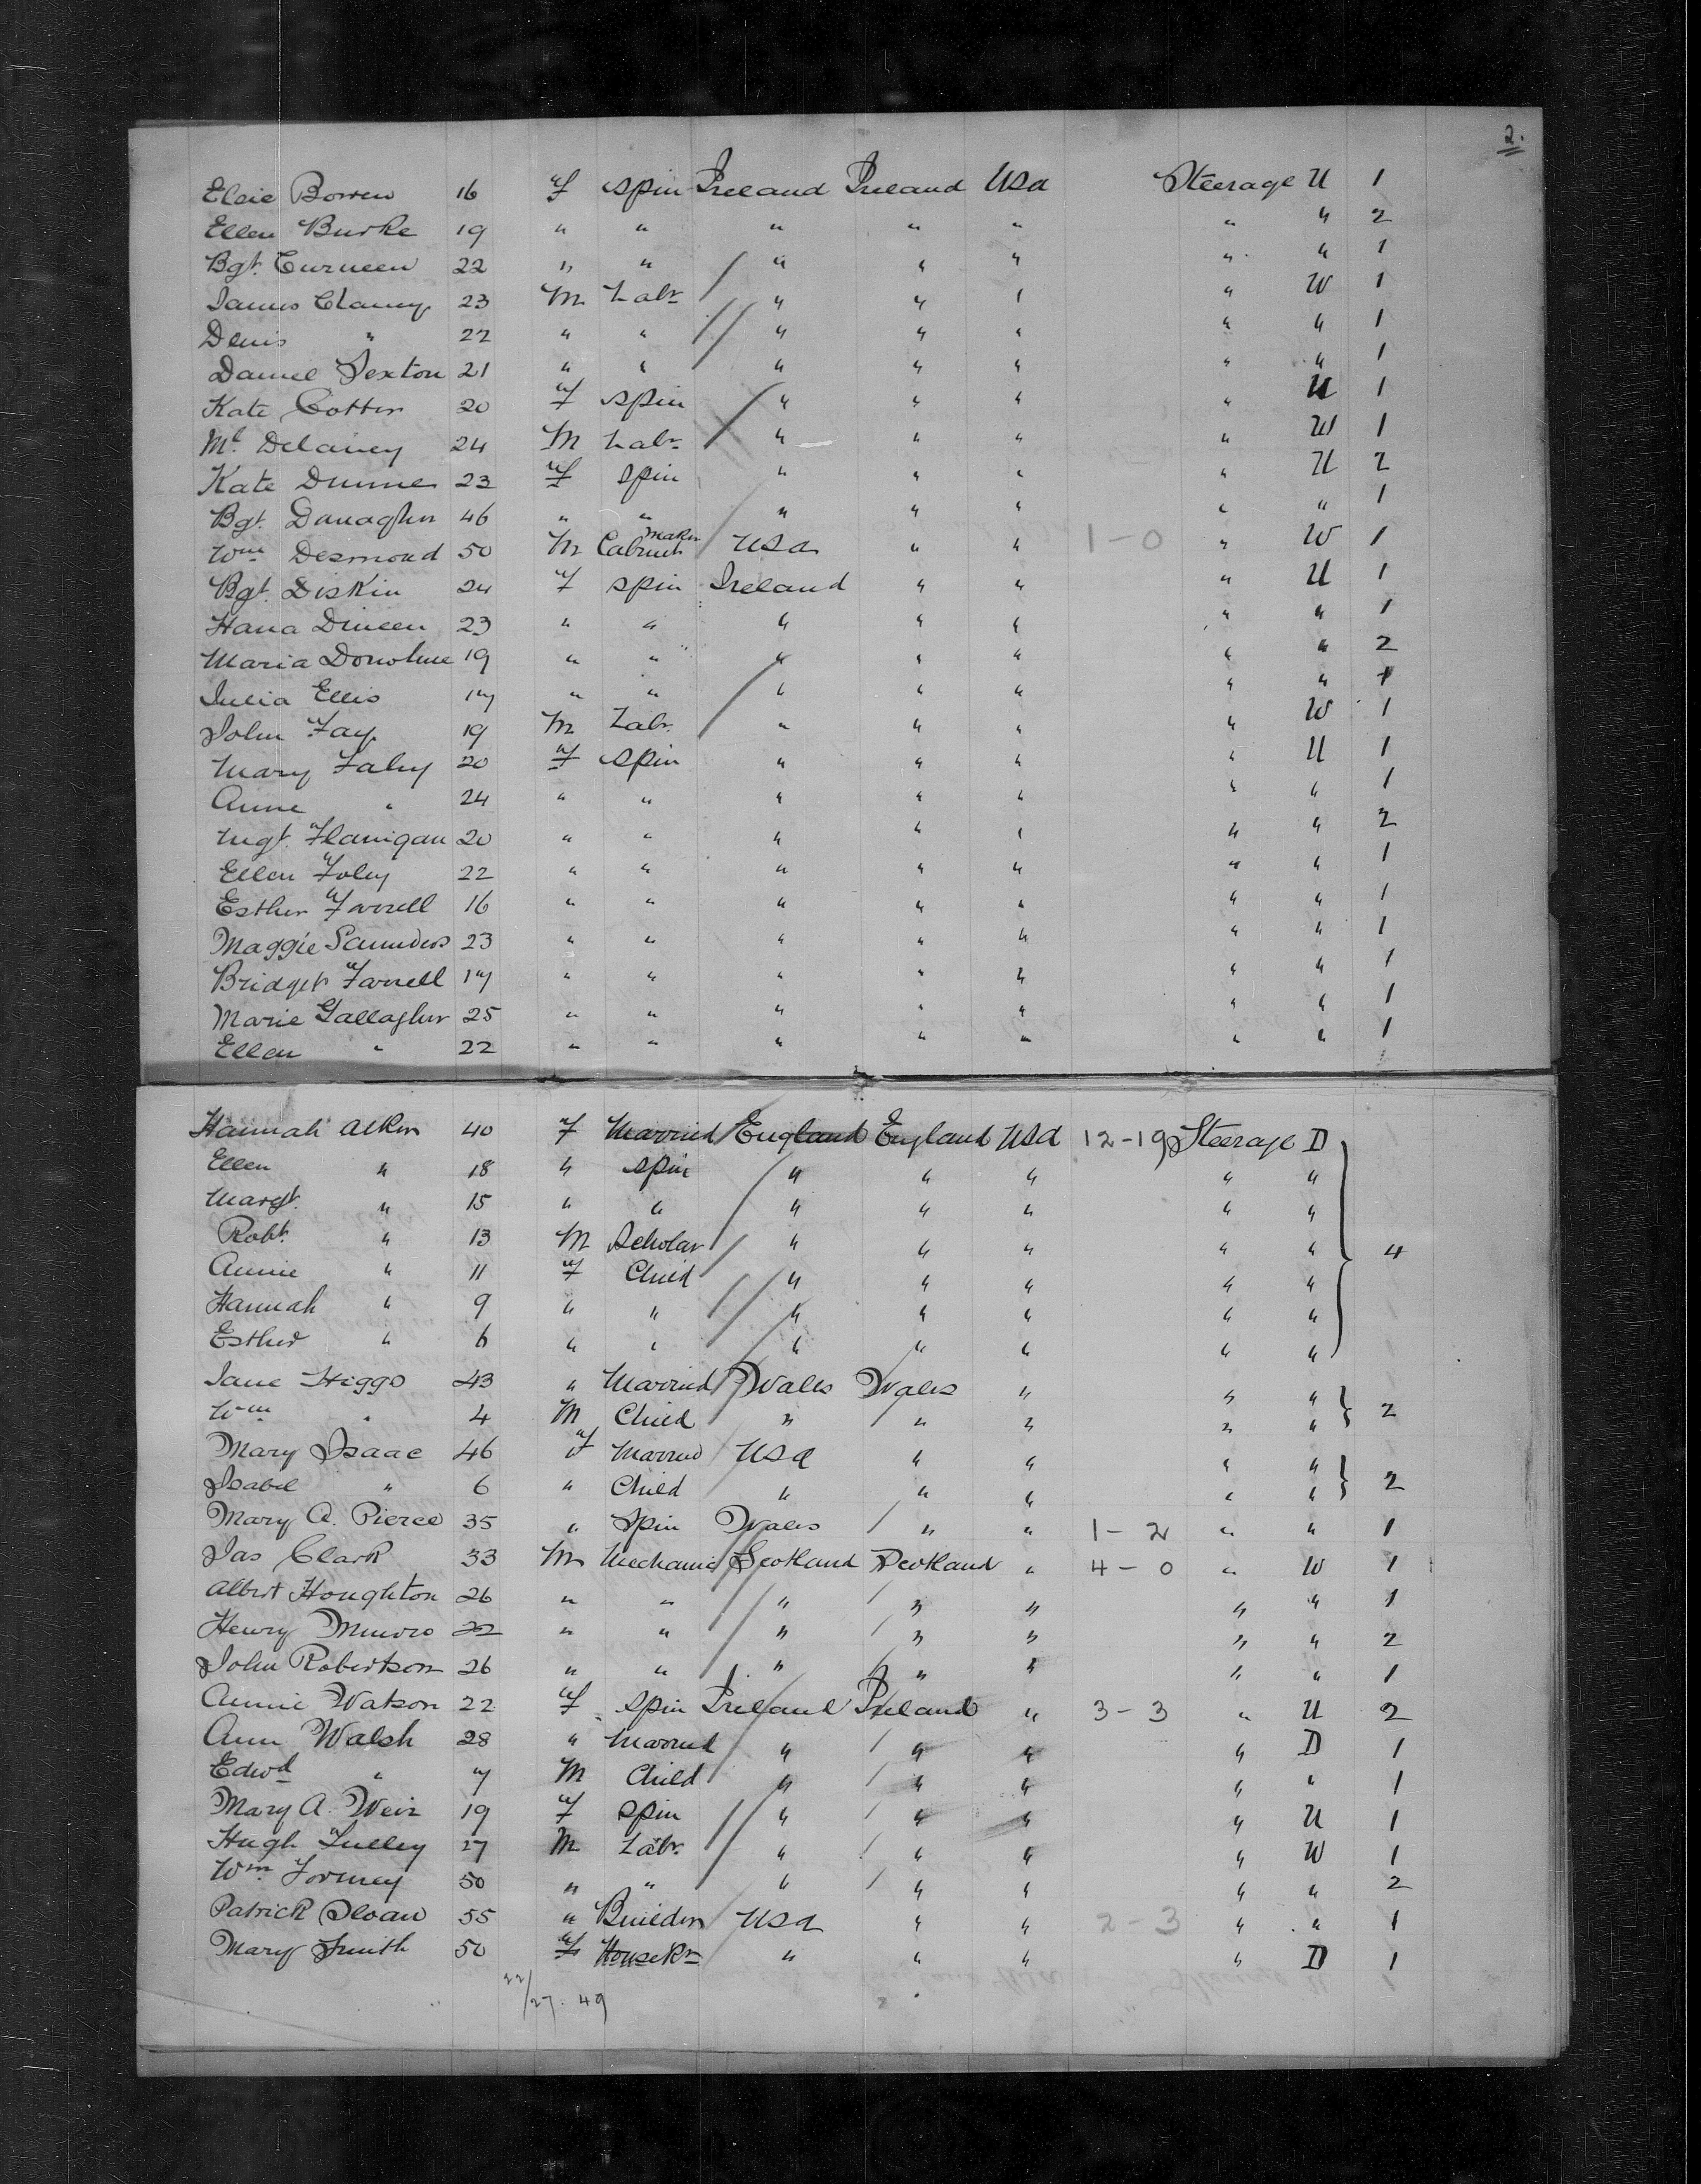 2.
Elsie Bowen 16 f spin Ireland Ireland Usa Steerage U 1
Ellen Burke 19 " " " " " " " 2
Bgt. Curneen 22 " " " " " " " 1
James Clancy 23 M Labr " " " " W 1
Denis " 22 " " " " " " " 1
Daniel Sexton 21 " " " " " " " 1
Kate Cotter 20 f spin " " " " U 1
Ml. Delaney 24 M Labr " " " " W 1
Kate Dunne 23 f spin " " " " U 2
Bgt. Danagher 46 " " " " " " " 1
Wm Desmond 50 M Cabinet maker Usa " " 1-0 " W 1
Bgt. Diskin 24 f spin Ireland " " " U 1
Hana Dineen 23 " " " " " " " 1
Maria Donohue 19 " " " " " " " 2
Julia Ellis 17 " " " " " " " 1
John Fay 19 M Labr " " " " W 1
Mary Fahy 20 f spin " " " " U 1
Anne " 24 " " " " " " " 1
Mgt. Flanigan 20 " " " " " " " 2
Ellen Foley 22 " " " " " " " 1
Esther Farrell 16 " " " " " " " 1
Maggie Saunders 23 " " " " " " " 1
Bridget Farrell 17 " " " " " " " 1
Marie Gallagher 25 " " " " " " " 1
Ellen " 22 " " " " " " " 1
Hannah Atkin 40 f Married England England Usa 12-19 Steerage D
Ellen " 18 " spin " " " " "
Margt. " 15 " " " " " " "
Robt. " 13 M Scholar " " " " " 4
Annie " 11 f Child " " " " "
Hannah " 9 " " " " " " "
Esther " 6 " " " " " " "
Jane Higgs 43 " Married Wales Wales " " "
Wm " 4 M Child " " " " " 2
Mary Isaac 46 f Married Usa " " " "
Isabel " 6 " Child " " " " " 2
Mary A. Pierce 35 " Spin Wales " " 1-2 " " 1
Jas Clark 33 M Mechanic Scotland Scotland " 4-0 " W 1
Albert Houghton 26 " " " " " " " 1
Henry Munro 22 " " " " " " " 2
John Robertson 26 " " " " " " " 1
Annie Watson 22 f spin Ireland Ireland " 3-3 " U 2
Ann Walsh 28 " Married " " " " D 1
Edwd " 7 M Child " " " " " 1
Mary A. Weir 19 f spin " " " " U 1
Hugh Tulley 27 M Labr. " " " " W 1
Wm Formey 50 " " " " " " " 2
Patrick Sloan 55 " Builder Usa " " 2-3 " " 1
Mary Smith 50 f HouseKr " " " " D 1
22/27. 49